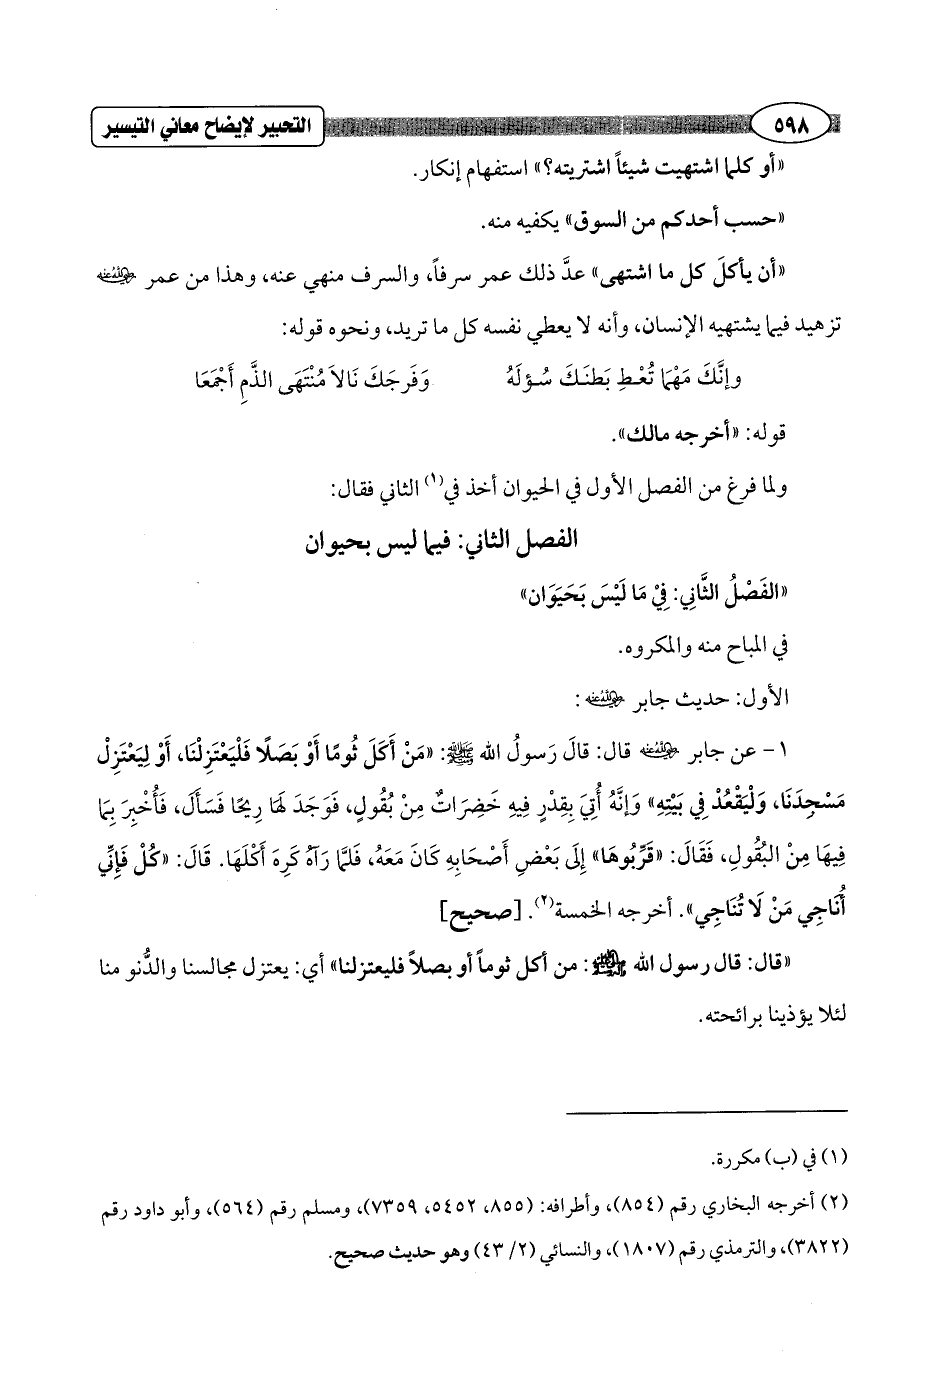 ٥٩٨ التحبير لإيضاح معاني التيسير
«أو كلما اشتهيت شيئاً اشتريته؟» استفهام إنكار.
«حسب أحدكم من السوق» يكفيه منه.
«أن يأكلَ كل ما اشتهى» عدَّ ذلك عمر سرفاً، والسرف منهي عنه، وهذا من عمر رضي الله عنه
تزهيد فيما يشتهيه الإنسان، وأنه لا يعطي نفسه كل ما تريد، ونحوه قوله:
وإنَّكَ مَهْمَا تُعْطِ بَطنَكَ سُؤلَهُ وَفَرجَكَ نَالاَ مُنْتَهَى الذَّمِ أَجْمَعَا
قوله: «أخرجه مالك».
ولما فرغ من الفصل الأول في الحيوان أخذ في(١) الثاني فقال:
الفصل الثاني: فيما ليس بحيوان
«الفَصْلُ الثَّانِي: فِيْ مَا لَيْسَ بَحَيَوَان»
في المباح منه والمكروه.
الأول: حديث جابر رضي الله عنه:
١- عن جابر رضي الله عنه قال: قالَ رَسولُ الله ﷺ: «مَنْ أَكَلَ ثُومًا أَوْ بَصَلًا فَلْيَعْتَزِلْنَا، أَوْ لِيَعْتَزِلْ
مَسْجِدَنَا، وَلْيَقْعُدْ فِي بَيْتِهِ» وَإِنَّهُ أُتِيَ بِقِدْرٍ فِيهِ خَضِرَاتٌ مِنْ بُقُولٍ، فَوَجَدَ لهَا رِيحًا فَسَأَلَ، فَأُخْبِرَ بِمَا
فِيهَا مِنْ البُقُولِ، فَقَالَ: «قَرِّبُوهَا» إِلَى بَعْضِ أَصْحَابِهِ كَانَ مَعَهُ، فَلمَّا رَآهُ كَرِهَ أَكْلَهَا. قَالَ: «كُلْ فَإِنِّي
أُنَاجِي مَنْ لَا تُنَاجِي». أخرجه الخمسة(٢). [صحيح]
«قال: قال رسول الله ﷺ: من أكل ثوماً أو بصلاً فليعتزلنا» أي: يعتزل مجالسنا والدُّنو منا
لئلا يؤذينا برائحته.
(١) في (ب) مكررة.
(٢) أخرجه البخاري رقم (٨٥٤)، وأطرافه: (٨٥٥، ٥٤٥٢، ٧٣٥٩)، ومسلم رقم (٥٦٤)، وأبو داود رقم
(٣٨٢٢)، والترمذي رقم (١٨٠٧)، والنسائي (٢/ ٤٣) وهو حديث صحيح.